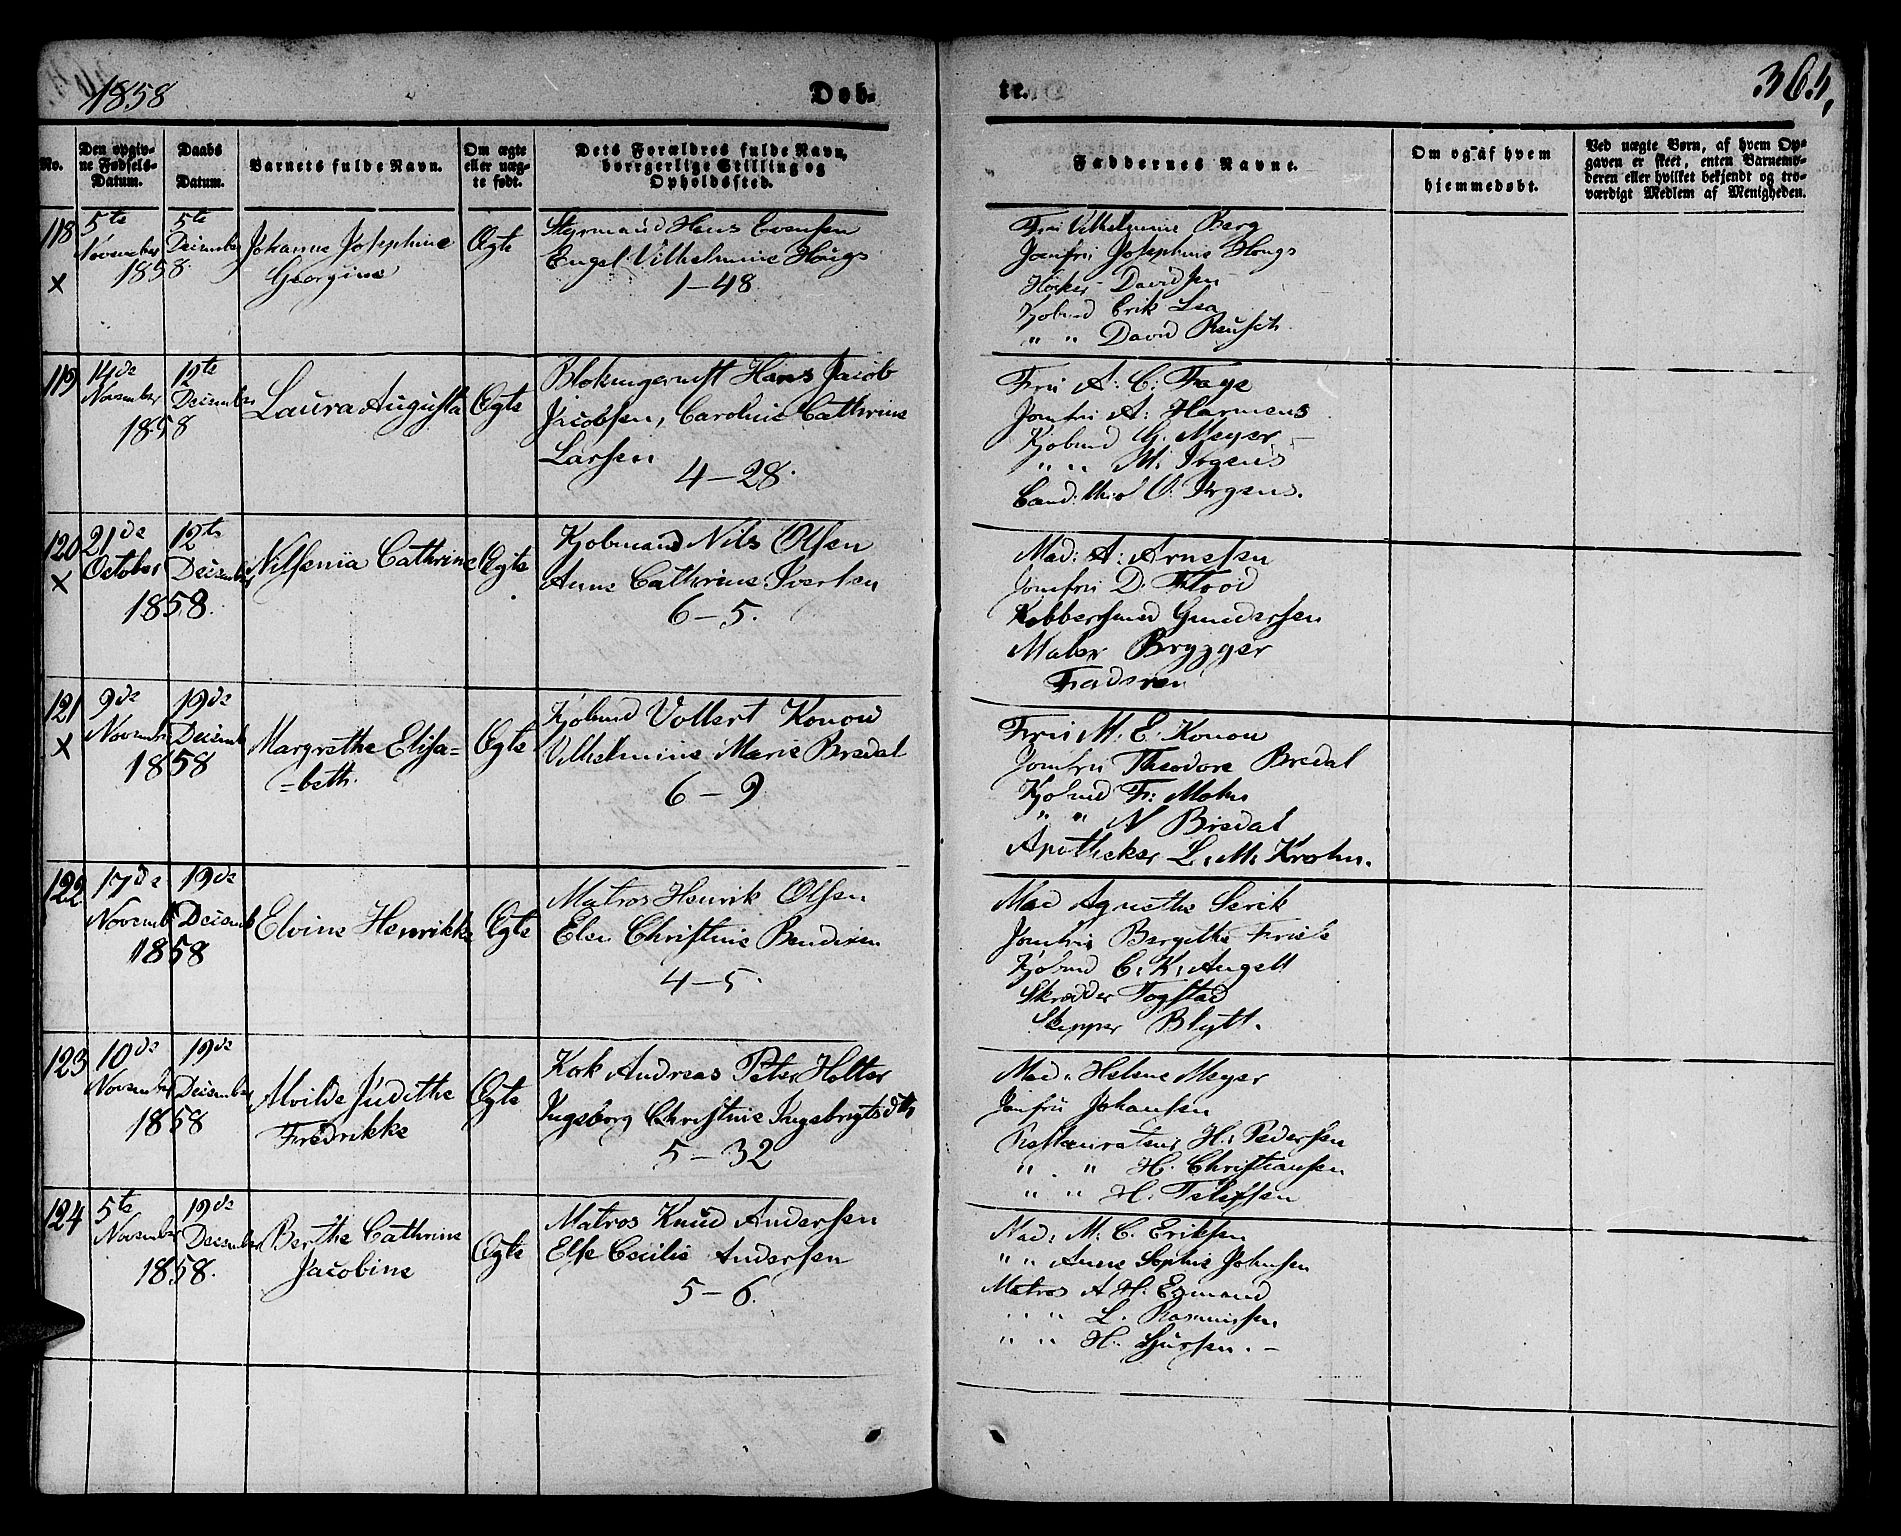 1858
Døb-
te.
365,
No.
Den opgiv-
ne Fødsels-
Datum.
Daabs
Datum.
Barnets fulde Navn.
Om ægte
eller uæg-
te født.
Dets Forældres fulde Navn,
borrgerlige Stilling og
Opholdssted.
Faddernes Navne.
Om og af hvem
hjemmedøbt.
Ved uægte Børn, af hvem Op-
gaven er skeet, enten Barnemo-
deren eller hvilket bekjendt og tro-
værdigt Medlem af Menigheden.
118
×
5te
November
1858
5te
December
Johanne Josephine
Georgine
Ægte
Styrmand Hans Evensen
Engel Vilhelmine Hougs
1-48.
Fru Vilhelmine Berg
Jomfru Josephine Hougs
Høker Davidsen
Kjobmd Erik Lea
" " David Reusch
119
14de
November
1858
12te
December
Laura Augusta
Ægte
Blokmagersvt Hans Jacob
Jacobsen, Caroline Cathrine
Larsen
4-28.
Fru A: C: Faye
Jomfru A: Harmens
Kjobmd G. Meyer
" " M: Irgens
Cand: O. Irgens.
120
×
21de
October
1858.
12te
December
Nilsenia Cathrine
Ægte
Kjobmand Nils Olsen
Anne Cathrine Iversen
6-5.
Mad: A: Arnesen
Jomfru D: Flood
Kobbersmed Gundersen
Maler Brygger
Faderen
121
×
9de
Novemb
1858
19de
Decemb
Margrethe Elisa=
=beth.
Ægte
Kjobmd Vollert Konow
Vilhelmine Marie Bredal
6-9
Fru M. E. Konow
Jomfru Theodore Bredal
Kjobmd Fr: Mohn
" " N Bredal
Apotheker L. M. Krohn.
122
17de
Novemb
1858
19de
Decemb
Elvine Henrikke
Ægte
Matros Henrik Olsen
Elen Christine Bendixen
4-5.
Mad Agnethe Serik
Jomfru Bergithe Friele
Kjobmd C. K. Angell
Skrædder Fogstad
Skipper Blytt.
123
10de
November
1858
19de
December
Alvilde Judithe
Fredrikke
Ægte
Kok Andreas Peter Holter
Ingeborg Christine Ingebrigtsdtr
5-32
Mad. Helene Meyer
Jomfru Johansen
Restaurateur H. Pedersen
" " H. Christiansen
" " H. Tellefsen
124
5te
November
1858.
19de
December
Berthe Cathrine
Jacobine
Ægte
Matros Knud Andersen
Else Cecilie Andersen
5-6.
Mad. M. C. Eriksen
" " Anne Sophie Johnsen
Matros A H. Egmand
" " L. Rasmussen
" " H. Sjursen.-